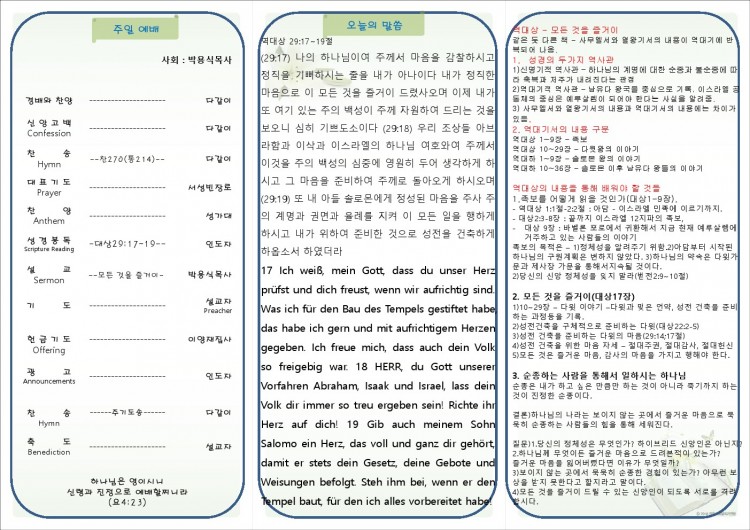 주일 예배
사회 : 박용식목사
경배와 찬양 ------------------ 다같이
신앙고백 ------------------ 다같이
Confession
찬 송 --찬270(통214)-- 다같이
Hymn
대표기도 ------------------ 서성빈장로
Prayer
찬 양 ------------------ 성가대
Anthem
성경봉독 --대상29:17-19-- 인도자
Scripture Reading
설 교 --모든 것을 즐거이-- 박용식목사
Sermon
기 도 ------------------ 설교자
Preacher
헌금기도 ------------------ 이영재집사
Offering
광 고 ------------------ 인도자
Announcements
찬 송 ------주기도송------ 다같이
Hymn
축 도 ------------------ 설교자
Benediction
하나님은 영이시니
신령과 진정으로 예배할찌니라
(요4:23)
오늘의 말씀
역대상 29:17-19절
(29:17) 나의 하나님이여 주께서 마음을 감찰하시고
정직을 기뻐하시는 줄을 내가 아나이다 내가 정직한
마음으로 이 모든 것을 즐거이 드렸사오며 이제 내가
또 여기 있는 주의 백성이 주께 자원하여 드리는 것을
보오니 심히 기쁘도소이다 (29:18) 우리 조상들 아브
라함과 이삭과 이스라엘의 하나님 여호와여 주께서
이것을 주의 백성의 심중에 영원히 두어 생각하게 하
시고 그 마음을 준비하여 주께로 돌아오게 하시오며
(29:19) 또 내 아들 솔로몬에게 정성된 마음을 주사 주
의 계명과 권면과 율례를 지켜 이 모든 일을 행하게
하시고 내가 위하여 준비한 것으로 성전을 건축하게
하옵소서 하였더라
17 Ich weiß, mein Gott, dass du unser Herz
prüfst und dich freust, wenn wir aufrichtig sind.
Was ich für den Bau des Tempels gestiftet habe,
das habe ich gern und mit aufrichtigem Herzen
gegeben. Ich freue mich, dass auch dein Volk
so freigebig war. 18 HERR, du Gott unserer
Vorfahren Abraham, Isaak und Israel, lass dein
Volk dir immer so treu ergeben sein! Richte ihr
Herz auf dich! 19 Gib auch meinem Sohn
Salomo ein Herz, das voll und ganz dir gehört,
damit er stets dein Gesetz, deine Gebote und
Weisungen befolgt. Steh ihm bei, wenn er den
Tempel baut, für den ich alles vorbereitet habe.
역대상 - 모든 것을 즐거이
같은 듯 다른 책 – 사무엘서와 열왕기서의 내용이 역대기에 반
복되어 나옴.
1. 성경의 두가지 역사관
1)신명기적 역사관 – 하나님의 계명에 대한 순종과 불순종에 따
라 축복과 저주가 내려진다는 관점
2)역대기적 역사관 – 남유다 왕국을 중심으로 기록. 이스라엘 공
동체의 중심은 예루살렘이 되어야 한다는 사실을 알려줌.
3) 사무엘서와 열왕기서의 내용과 역대기서의 내용에는 차이가
있음.
2. 역대기서의 내용 구분
역대상 1~9장 – 족보
역대상 10~29장 – 다윗왕의 이야기
역대하 1~9장 – 솔로몬 왕의 이야기
역대하 10~36장 – 솔로몬 이후 남유다 왕들의 이야기
역대상의 내용을 통해 배워야 할 것들
1.족보를 어떻게 읽을 것인가(대상1~9장).
- 역대상 1:1절-2:2절 : 아담 - 이스라엘 민족에 이르기까지.
- 대상2:3-8장 : 끝까지 이스라엘 12지파의 족보,
- 대상 9장 : 바벨론 포로에서 귀환해서 지금 현재 예루살렘에
거주하고 있는 사람들의 이야기
족보의 목적은 – 1)정체성을 알려주기 위함.2)아담부터 시작된
하나님의 구원계획은 변하지 않았다. 3)하나님의 약속은 다윗가
문과 제사장 가문을 통해서지속될 것이다.
2)당신의 신앙 정체성을 잊지 말라(벧전2:9~10절)
2. 모든 것을 즐거이(대상17장)
1)10~29장 – 다윗 이야기 –다윗과 맺은 언약, 성전 건축을 준비
하는 과정등을 기록.
2)성전건축을 구체적으로 준비하는 다윗(대상22:2-5)
3)성전건축을 준비하는 다윗의 마음(29:14;17절)
4)성전 건축을 위한 마음 자세 – 절대주권, 절대감사, 절대헌신
5)모든 것은 즐거운 마음, 감사의 마음을 가지고 행해야 한다.
3. 순종하는 사람을 통해서 일하시는 하나님
순종은 내가 하고 싶은 만큼만 하는 것이 아니라 죽기까지 하는
것이 진정한 순종이다.
결론)하나님의 나라는 보이지 않는 곳에서 즐거운 마음으로 묵
묵히 순종하는 사람들의 힘을 통해 세워진다.
질문)1.당신의 정체성은 무엇인가? 하이브리드 신앙인은 아닌지?
2.하나님께 무엇이든 즐거운 마음으로 드려본적이 있는가?
즐거운 마음을 잃어버렸다면 이유가 무엇일까?
3)보이지 않는 곳에서 묵묵히 순종한 경험이 있는가? 아무런 보
상을 받지 못한다고 할지라고 말이다.
4)모든 것을 즐거이 드릴 수 있는 신앙인이 되도록 서로를 격려
합시다.